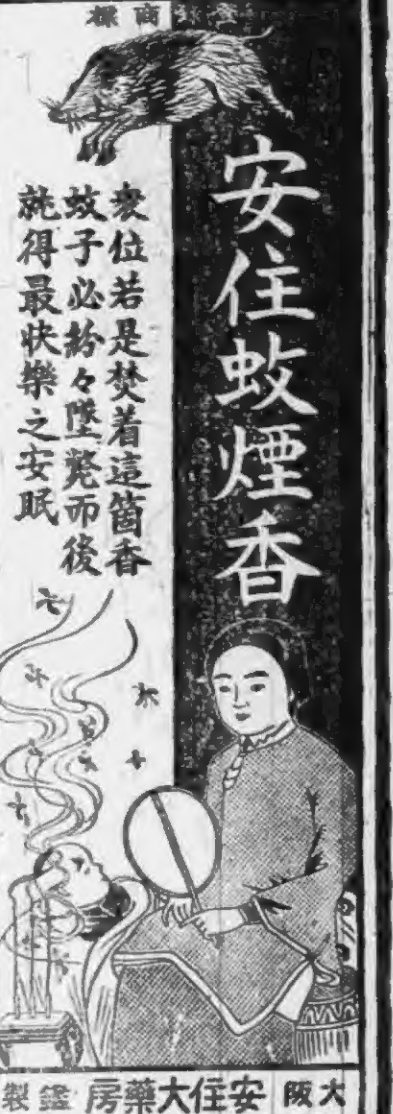 商標
安住蚊煙香
衆位若是焚着這箇香
蚊子必紛々墜斃而後
就得最快樂之安眠
大阪 安住大藥房 製